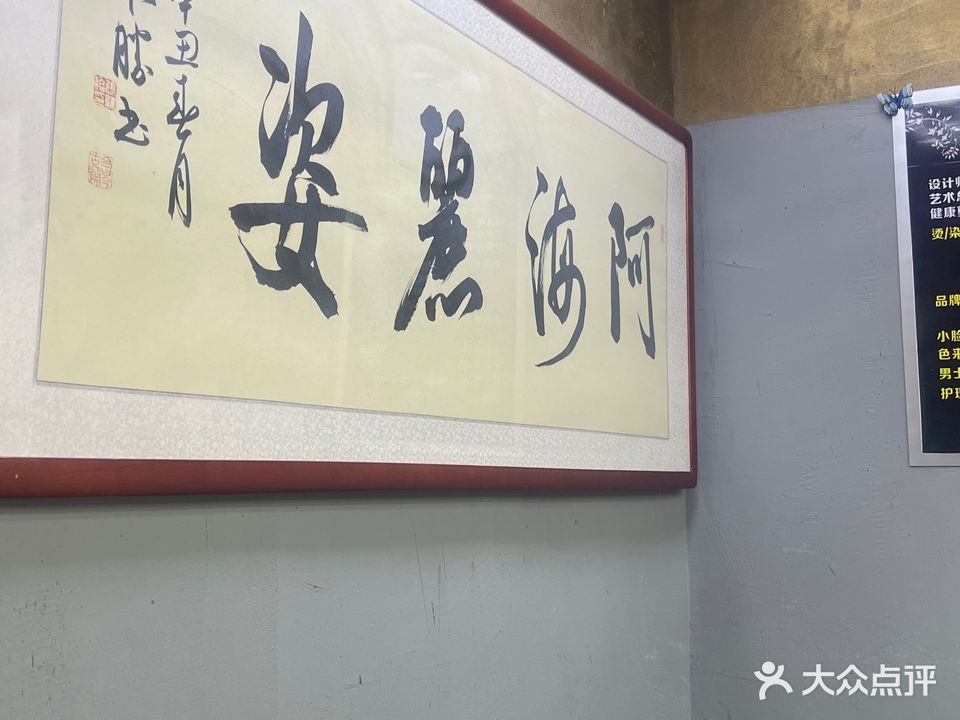 阿海麗姿
辛丑春月
勝书
设计师
艺术
健康
烫/染
品牌
小脸
色彩
男士
护理
大众点评